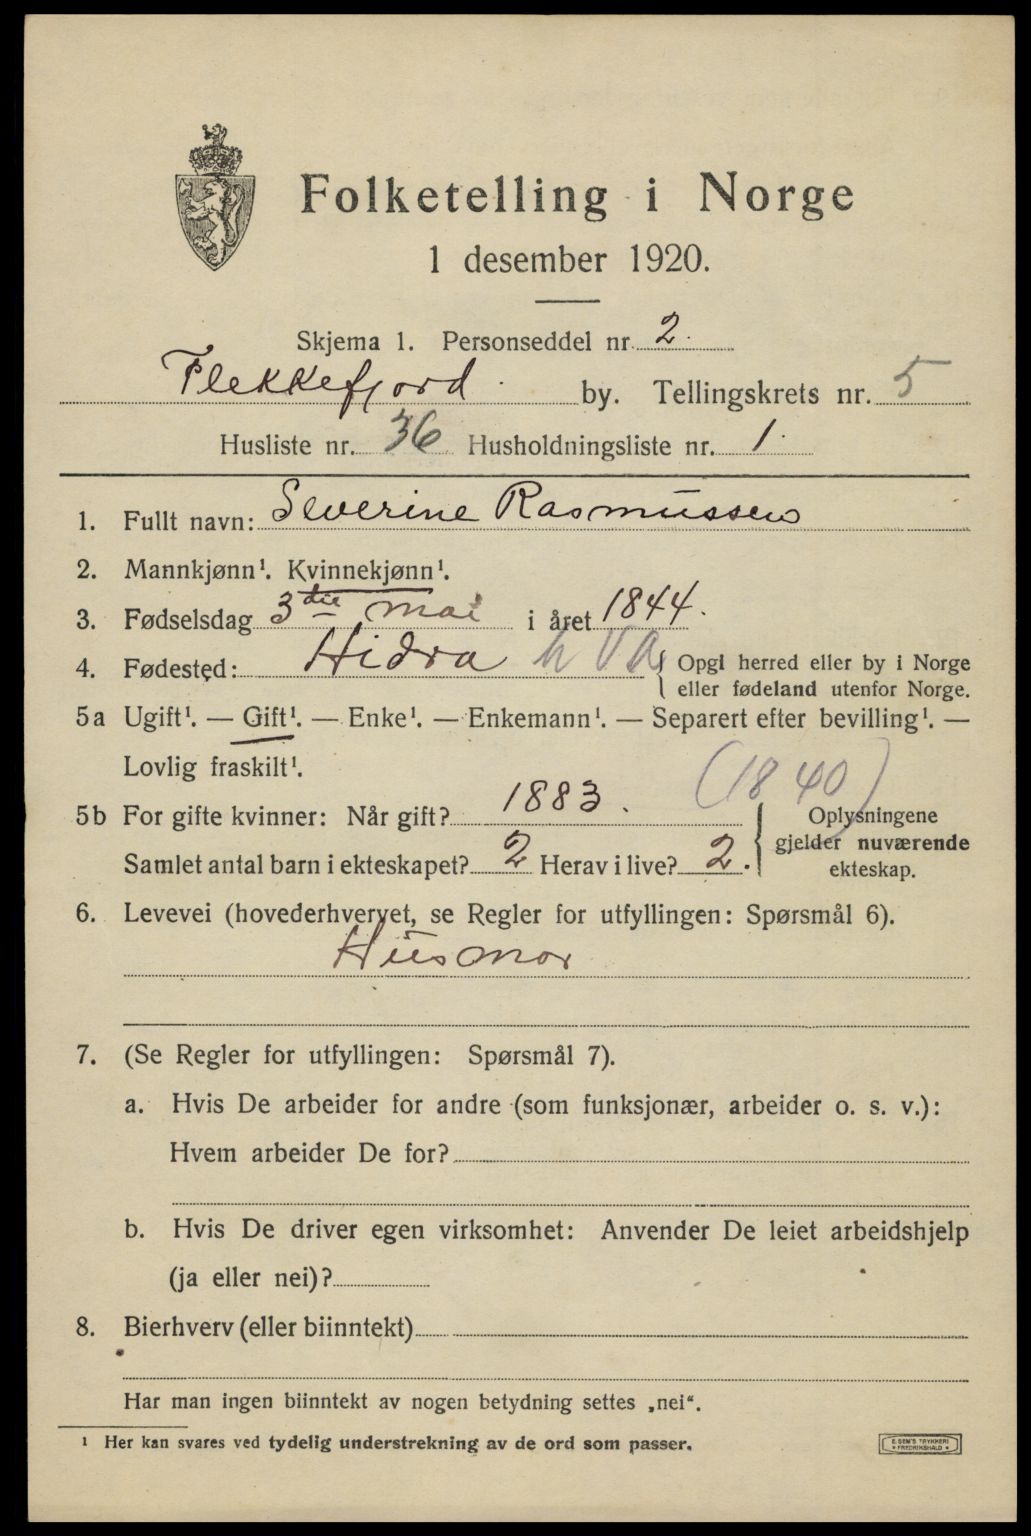 Folketelling i Norge
1 desember 1920.
Skjema 1. Personseddel nr. 2.
Flekkefjord. by. Tellingskrets nr. 5
Husliste nr. 36 Husholdningsliste nr. 1.
1. Fullt navn: Severine Rasmussen
2. Mannkjønn¹. Kvinnekjønn¹.
3. Fødselsdag 3die mai i året 1844.
4. Fødested: Hidra h VA { Opgi herred eller by i Norge
eller fødeland utenfor Norge.
5a Ugift¹. — Gift¹. — Enke¹. — Enkemann¹. — Separert efter bevilling¹. —
Lovlig fraskilt¹.
(1840)
5b For gifte kvinner: Når gift? 1883. { Oplysningene
gjelder nuværende
Samlet antal barn i ekteskapet? 2 Herav i live? 2.
ekteskap.
6. Levevei (hovederhvervet, se Regler for utfyllingen: Spørsmål 6).
Husmor
7. (Se Regler for utfyllingen: Spørsmål 7).
a. Hvis De arbeider for andre (som funksjonær, arbeider o. s. v.):
Hvem arbeider De for?
b. Hvis De driver egen virksomhet: Anvender De leiet arbeidshjelp
(ja eller nei)?
8. Bierhverv (eller biinntekt)
Har man ingen biinntekt av nogen betydning settes „nei“.
¹ Her kan svares ved tydelig understrekning av de ord som passer.
E. SEM'S TRYKKERI
• FREDRIKSHALD •